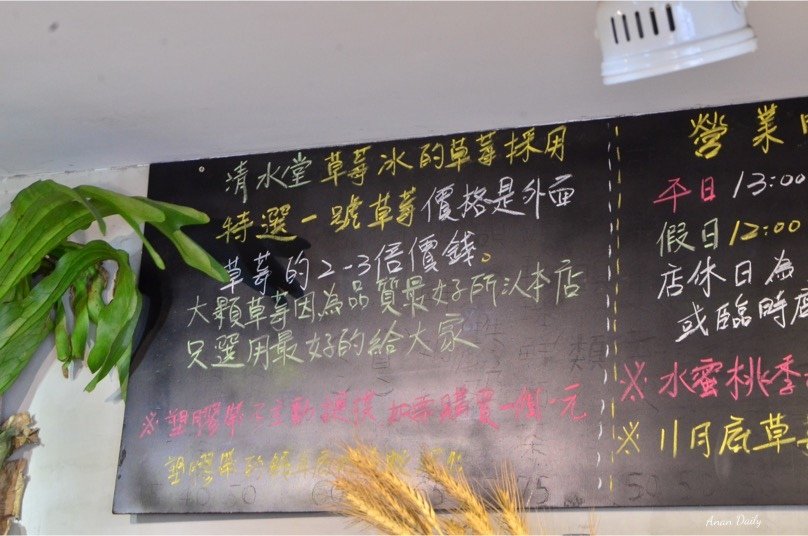 清水堂草莓冰的草莓採用
特選一號草莓價格是外面
草莓的2-3倍價錢。
大顆草莓因為品質最好所以本店
只選用最好的給大家
※塑膠帶不主動提供 如需購買一個一元
塑膠帶
營業
平日 13:00
假日 12:00
店休日為
或臨時店
※水蜜桃季
※11月底草莓
Anan Daily